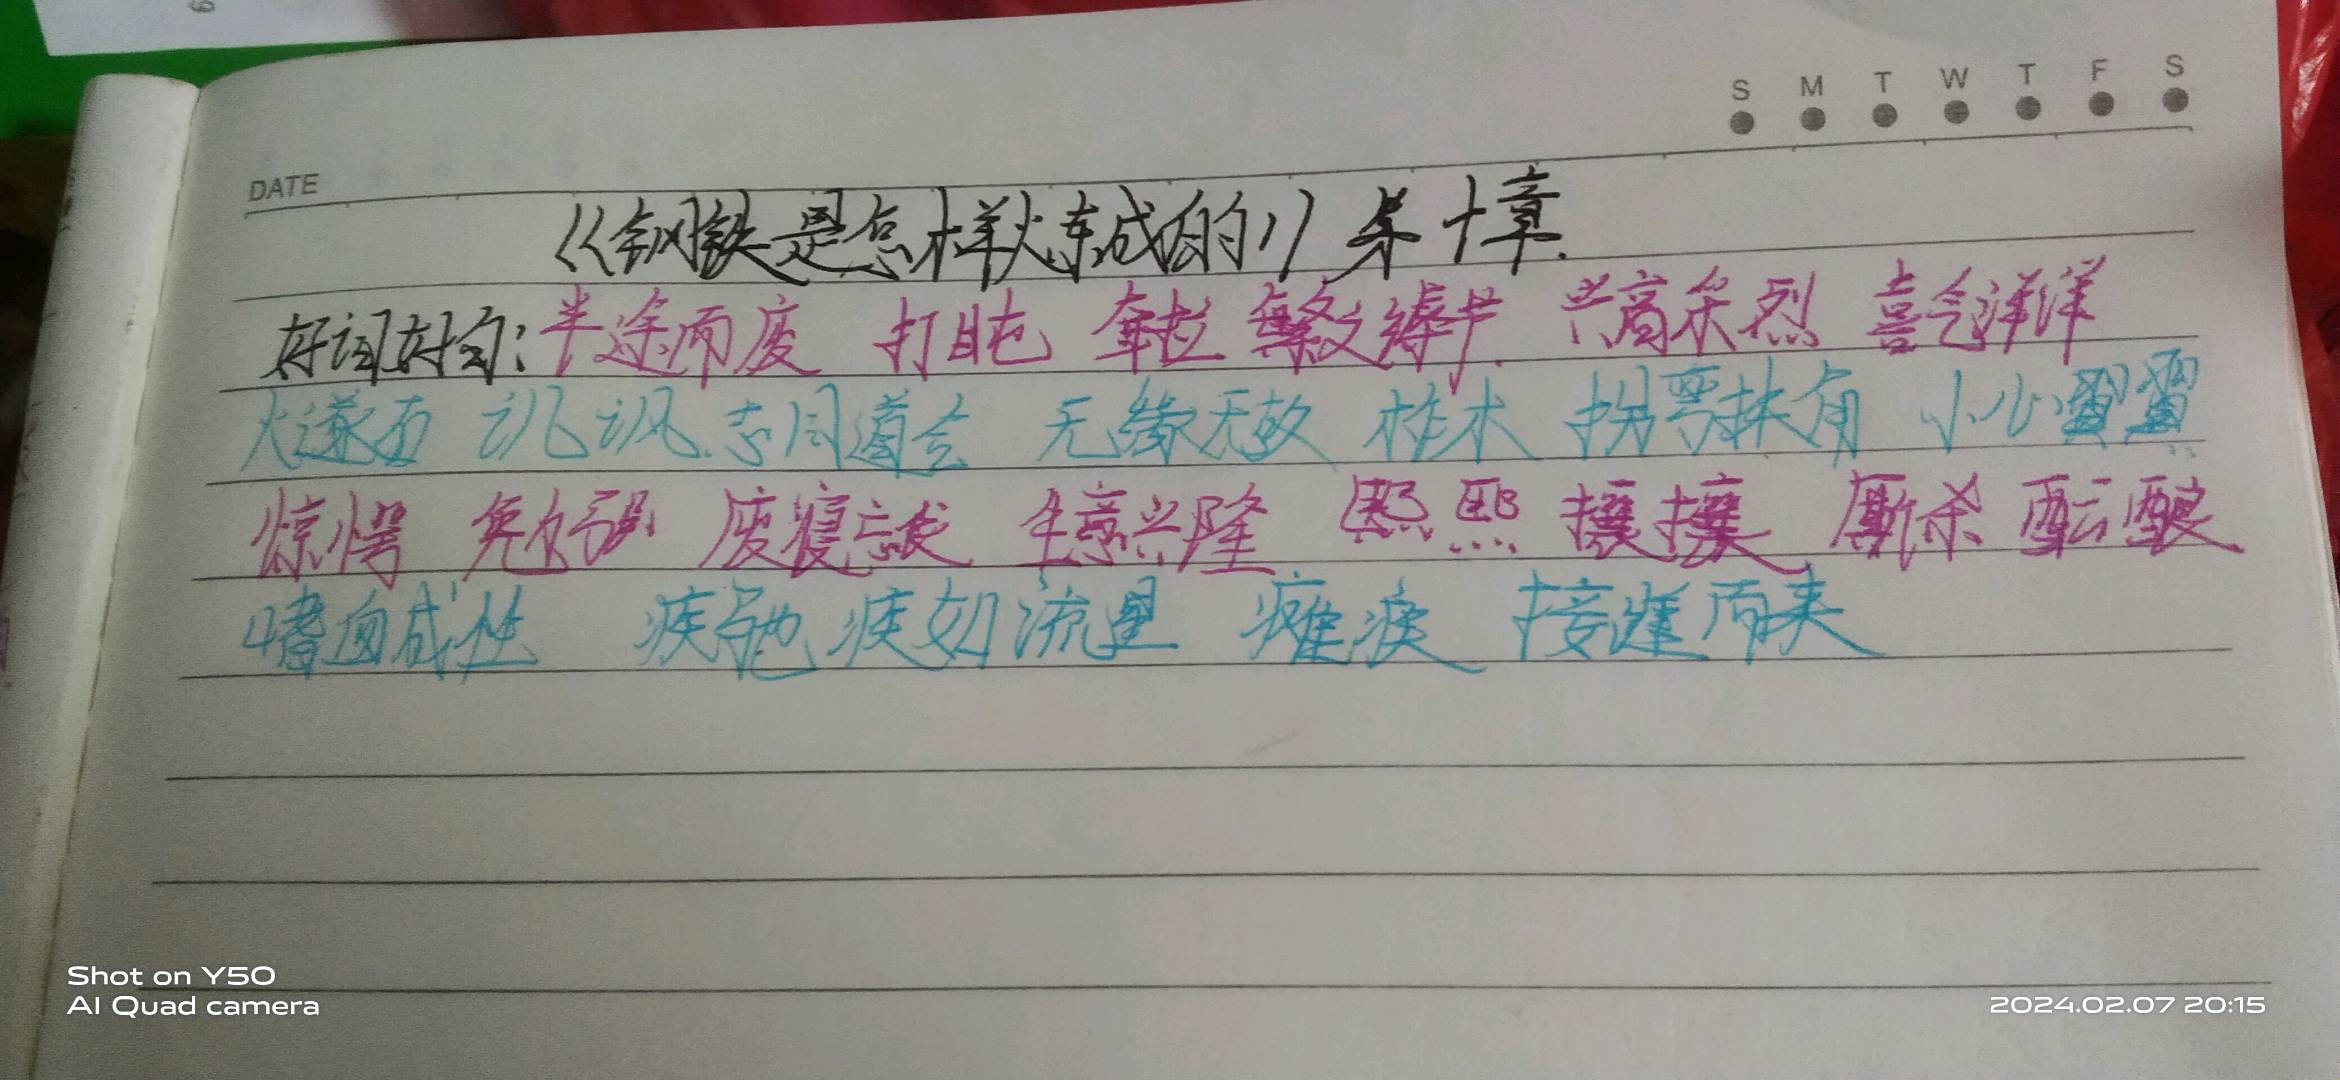 S M T W T F S
DATE
《钢铁是怎样炼成的》第十章.
好词好句:半途而废 打盹 耷拉 繁文缛节 兴高采烈 喜气洋洋
火燧石 讥讽 志同道合 无缘无故 柞木 拐弯抹角 小心翼翼
惊愕 免好 废寝忘食 生意兴隆 熙熙攘攘 厮杀 酝酿
嗜血成性 疾驰 疾如流星 瘫痪 接踵而来
Shot on Y50
AI Quad camera
2024.02.07 20:15